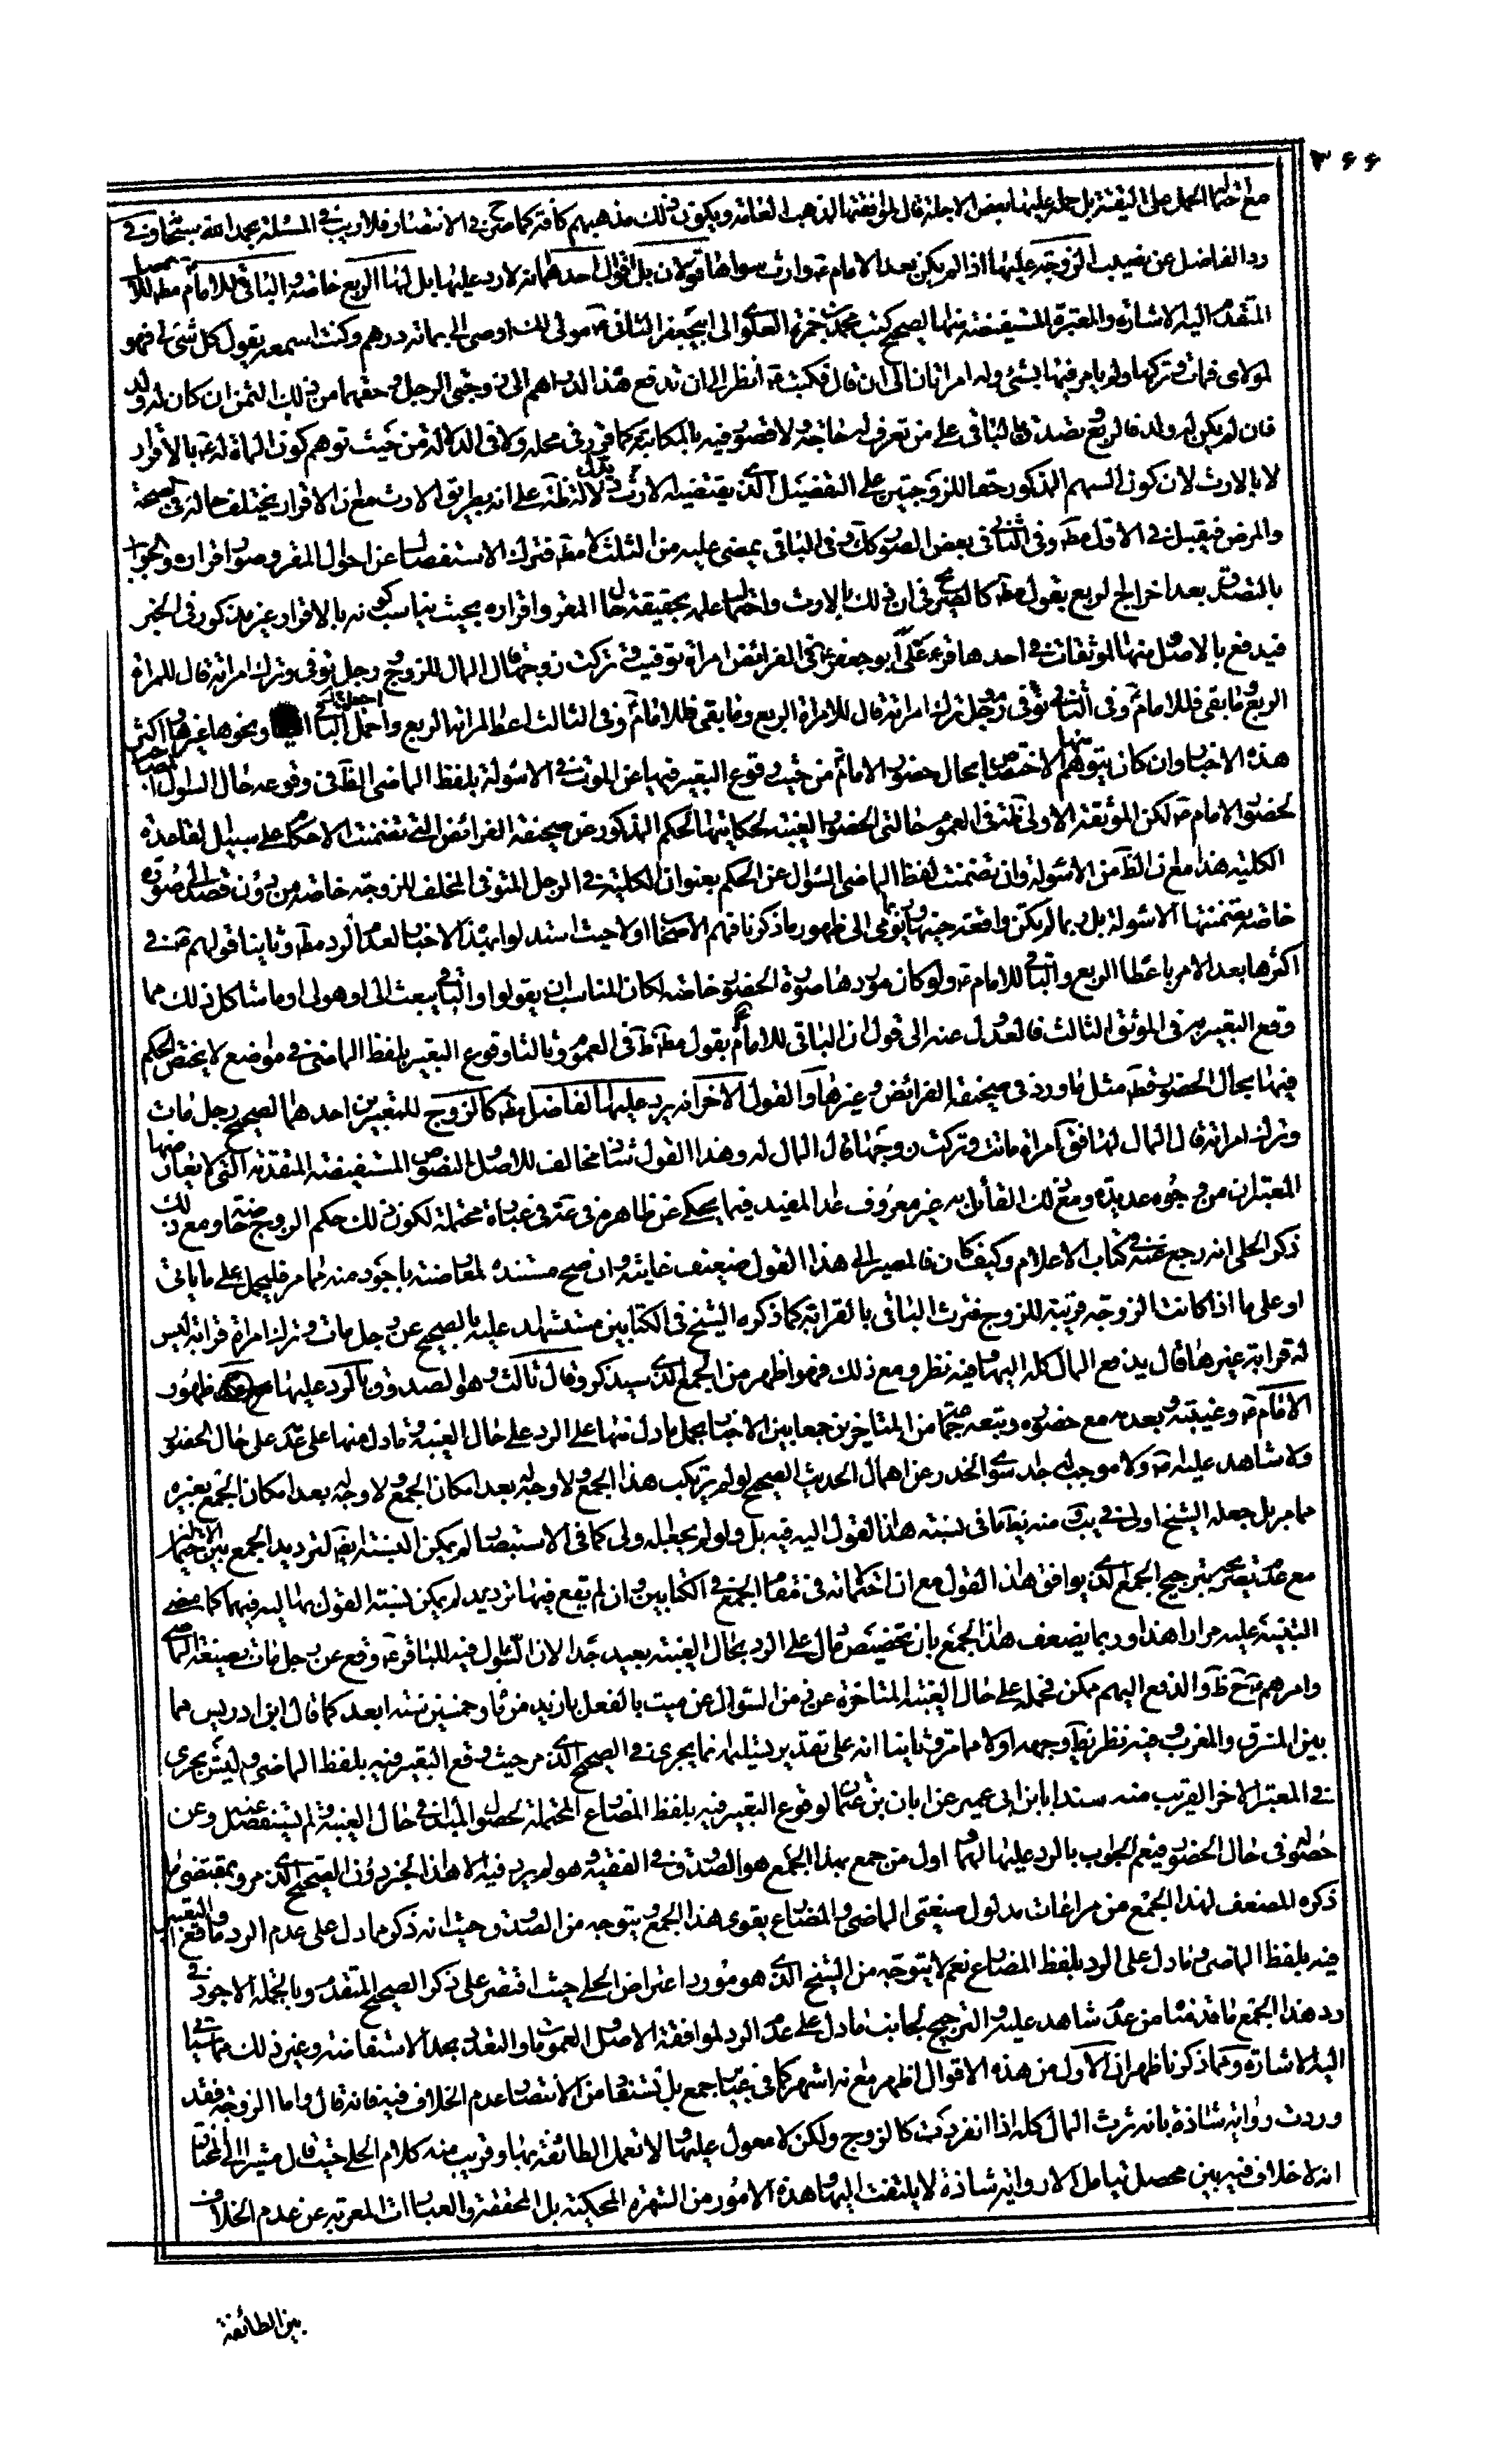 ٣٦٦
مع احتمالها الحمل على التقية بل حمله عليها بعض الاجلة قال لموافقتها لمذهب العامة ويكون ذلك مذهبهم كافة كما صرح في الانتصار فلا ريب في المسئلة بحمد الله سبحانه وفي
رد الفاضل عن نصيب الزوجة عليها اذا لم يكن بعد الامام ع وارث سواها قولان بل اقوال احدها انه لا رد عليها بل لها الربع خاصة والباقي للامام ع مط للاصل
المتقدم اليه الاشارة والمعتبرة المستفيضة منها الصحيح كتب محمد بن حمزة العلوي الى ابي جعفر الثاني ع مولى لك اوصى الي بمائة درهم وكنت اسمعه يقول كل شئ لي فهو
لمولاي فمات وتركها ولم يامر فيها بشئ وله امراتان الى ان قال فكتب ع انظر الى ان تدفع هذا الدراهم الى زوجتي الرجل وحقهما من ذلك الثمن ان كان له ولد
فان لم يكن له ولد فالربع وتصدق بالباقي على من تعرف له حاجة ولا قصور فيه بالمكاتبة كما قرر في محله ولا في الدلالة من حيث توهم كون المائة له ع بالاقرار
لا بالارث لان كون السهم المذكور حقا للزوجتين على التفصيل الذي يقتضيه الارث يدل دلالة ظ على انه بطريق الارث مع ان الاقرار يختلف حاله في الصحة
والمرض فيقبل في الاول مط وفي الثاني في بعض الصور كك وفي الباقي يمضي عليه من الثلث لا مط فترك الاستفصال عن احوال المقر وصور اقراره والجواب
بالتصدق بعد اخراج الربع بقول مط كالصريح في ان ذلك بالارث واحتمال علمه بحقيقة حال المقر واقراره بحيث يناسب كونه بالاقرار غير مذكور في الخبر
فيدفع بالاصل منها الموثقات في احدها قرء علي ابو جعفر ع في الفرائض امراة توفيت وتركت زوجها قال المال للزوج ورجل توفي وترك امراته قال للمراة
الربع وما بقي فللامام ع وفي الثاني توفي رجل وترك امراته قال للامراة الربع وما بقي فللامام وفي الثالث اعط المراة الربع واحمل الباقي الينا ونحوها غيرها اكثر
هذه الاخبار وان كان يتوهم منها الاختصاص بحال حضور الامام من حيث وقوع التعبير فيها عن الموت في الاسولة بلفظ الماضي الظ في وقوعه حال السؤال
لحضور الامام ع لكن الموثقة الاولى ظ في العموم لحالتي الحضور والغيبة لحكايتها الحكم المذكور عن صحيفة الفرائض التي تضمنت الاحكام على سبيل القاعدة
الكلية هذا مع ان الظ من الاسولة وان تضمنت لفظ الماضي السؤال عن الحكم بعنوان الكلية في الرجل المتوفى المخلف للزوجة خاصة من دون قصد الى صورة
خاصة يتضمنتها الاسولة بل ربما لم يكن واقعة حينها ويومي الى ظهور ما ذكرنا فهم الاصحاب اولا حيث استدلوا بهذه الاخبار لعدم الرد مط وثانيا قولهم ع في
اكثرها بعد الامر باعطا الربع والباقي للامام ع ولو كان موردها صورة الحضور خاصة لكان المناسب ان يقولوا والباقي يبعث الي او هو لي او ما شاكل ذلك مما
وقع التعبير به في الموثق الثالث فالعدول عنه الى قول ان الباقي للامام ع بقول مط ظ في العموم وثالثا وقوع التعبير بلفظ الماضي في مواضع لا يختص الحكم
فيها بحال الحضور قط مثل ما ورد في صحيفة الفرائض وغيرها والقول الاخر انه يرد عليها الفاضل مط كالزوج للمعتبرين احدهما الصحيح رجل مات
وترك امراته قال المال لها قلت امراة ماتت وتركت زوجها قال المال له وهذا القول شاذ مخالف للاصل والنصوص المستفيضة المتقدمة التي لا يعارضها
المعتبران من وجوه عديدة ومع ذلك القائل به غير معروف عدا المفيد فيما يحكى عن ظاهره في عة في عبارة محتملة لكون ذلك حكم الزوج خاصة ومع ذلك
ذكر الحلي انه رجع عنه في كتاب الاعلام وكيف كان فالمصير الى هذا القول ضعيف غايته وان صح مستنده لمعارضته باجود منه مما مر فليحمل على ما ياتي
او على ما اذا كانت الزوجة قريبة للزوج فترث الباقي بالقرابة كما ذكره الشيخ في الكتابين مستشهدا عليه بالصحيح عن رجل مات وترك امراة قرابة ليس
له قرابة غيرها قال يدفع المال كله اليها وفيه نظر ومع ذلك فهو اظهر من الجمع الذي سيذكر وقال ثالث وهو الصدوق بالرد عليها مع ظهور
الامام ع وغيبته وبعدمه مع حضوره وتبعه جماعة من المتاخرين جمعا بين الاخبار بحمل ما دل منها على الرد على حال الغيبة وما دل منها على عدمه على حال الحضور
ولا شاهد عليه ولا موجب له جدا سوى الحذر عن اهمال الحديث الصحيح لو لم يرتكب هذا الجمع ولا وجه له بعد امكان الجمع ولا وجه له بعد امكان الجمع بغيره
مما مر بل جعله الشيخ اولى في يب ومنه يظ ما في نسبة هذا القول اليه فيه بل ولو لم يجعله اولى كما في الاستبصار لم يمكن النسبة ايضا لترديد الجمع بين الاحتمالين
مع عدم تصريحه بترجيح الجمع الذي يوافق هذا القول مع ان احتماله في مقام الجمع في الكتابين وان لم يقع فيها ترديد لم يمكن نسبة القول بها اليه فيهما كما مضى
التنبيه عليه مرارا هذا وربما يضعف هذا الجمع بان تخصيص ما دل على الرد بحال الغيبة بعيد جدا لان السؤال فيه للباقر ع وقع عن رجل مات بصيغة الماضي
وامرهم ع ح ظ والدفع اليهم ممكن فحمله على حال الغيبة المتاخرة عن زمن السؤال عن ميت بالفعل بازيد من مائة وخمسين سنة ابعد كما قال ابن ادريس مما
بين المشرق والمغرب وفيه نظر يظ وجهه اولا مما مر وثانيا انه على تقدير تسليمه انما يجري في الصحيح الذي مر حيث وقع التعبير فيه بلفظ الماضي وليس يجري
في المعتبر الاخر القريب منه سندا بابن ابي عمير عن ابان بن عثمان لوقوع التعبير فيه بلفظ المضارع المحتملة لحصول المبدا في حال الغيبة ولم يستفصل عنه وعن
حصوله في حال الحضور فيعم الجواب بالرد عليها لهما اول من جمع بهذا الجمع هو الصدوق في الفقيه وهو لم يرو فيه الا هذا الخبر دون الصحيح الذي مر وبمقتضى ما
ذكره المضعف لهذا الجمع من مراعات مدلول صيغتي الماضي والمضارع يقوى هذا الجمع ويتوجه من الصدوق حيث انه ذكر ما دل على عدم الرد وما وقع التعبير
فيه بلفظ الماضي وما دل على الرد بلفظ المضارع نعم لا يتوجه من الشيخ الذي هو مورد اعتراض الحلي حيث اقتصر على ذكر الصحيح المتقدم وبالجملة الاجود في
رد هذا الجمع ما قدمنا من عدم شاهد عليه والترجيح لجانب ما دل على عدم الرد لموافقة الاصل والعمومات والتعدد بحد الاستفاضة وغير ذلك مما سياتي
اليه الاشارة ومما ذكرنا ظهر ان الاول من هذه الاقوال اظهر مع انه اشهر كما في عبارة جمع بل يستفاد من الانتصار عدم الخلاف فيه فانه قال واما الزوجة فقد
وردت رواية شاذة بانها ترث المال كله اذا انفردت كالزوج ولكن لا معول عليها ولا تعمل الطائفة بها وقريب منه كلام الحلي حيث قال مشيرا الى المختار
انه لا خلاف فيه بين محصل تامل الا رواية شاذة لا يلتفت اليها وهذه الامور من الشهرة المحكية بل المحققة والعبارات المعربة عن عدم الخلاف
بين الطائفة